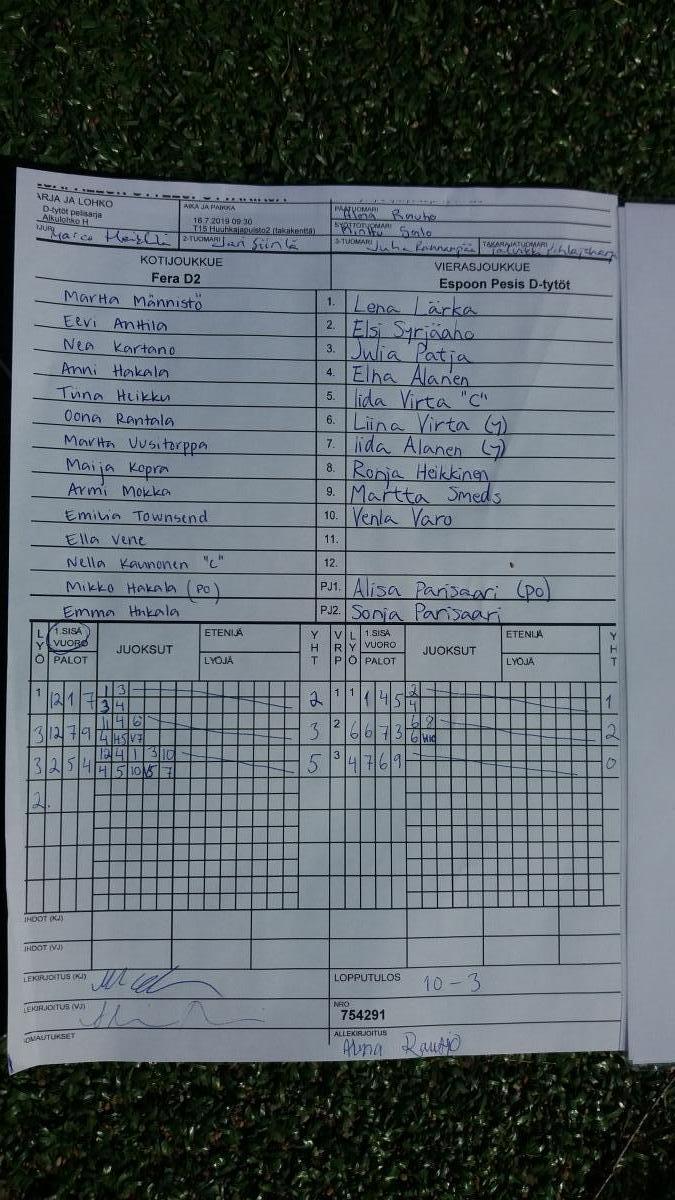 ARJA JA LOHKO
D-tytöt pelisarja
Alkulohko H
AIKA JA PAIKKA
16.7.2019 09:30
T15 Huuhkajapuisto2 (takakenttä)
PÄÄTUOMARI
Alma Rauho
Minttu Salo
2-TUOMARI Jari
3-TUOMARI Juha
TAKARAJATUOMARI
KOTIJOUKKUE
Fera D2
VIERASJOUKKUE
Espoon Pesis D-tytöt
Martta Männistö 1. Lena Lärka
Eevi Anttila 2. Elsi Syrjäaho
Nea Kartano 3. Julia Patja
Anni Hakala 4. Elna Alanen
Tiina Heikku 5. Iida Virta "C"
Oona Rantala 6. Liina Virta (y)
Martta Uusitorppa 7. Iida Alanen (y)
Maija Kopra 8. Ronja Heikkinen
Armi Mokka 9. Martta Smeds
Emilia Townsend 10. Venla Varo
Ella Vene 11.
Nella Kaunonen "C" 12.
Mikko Hakala (PO) PJ1. Alisa Parisaari (po)
Emma Hakala PJ2. Sonja Parisaari
LYÖ 1.SISÄ VUORO PALOT JUOKSUT ETENIJÄ LYÖJÄ YHT VRP LYÖ 1.SISÄ VUORO PALOT JUOKSUT ETENIJÄ LYÖJÄ YHT
1 12 1 7 1 3 2 1 1 1 4 5 2 1
3 4 4
3 12 7 9 11 4 6 3 2 6 6 7 3 6 8 2
4 H5 V7 6 H10
3 2 5 4 12 4 1 3 10 5 3 4 7 6 9 0
4 5 10 V5 7
2.
HDOT (KJ)
HDOT (VJ)
LEKIRJOITUS (KJ)
LOPPUTULOS 10-3
LEKIRJOITUS (VJ)
NRO
754291
OMAUTUKSET
ALLEKIRJOITUS
Alma Rauho